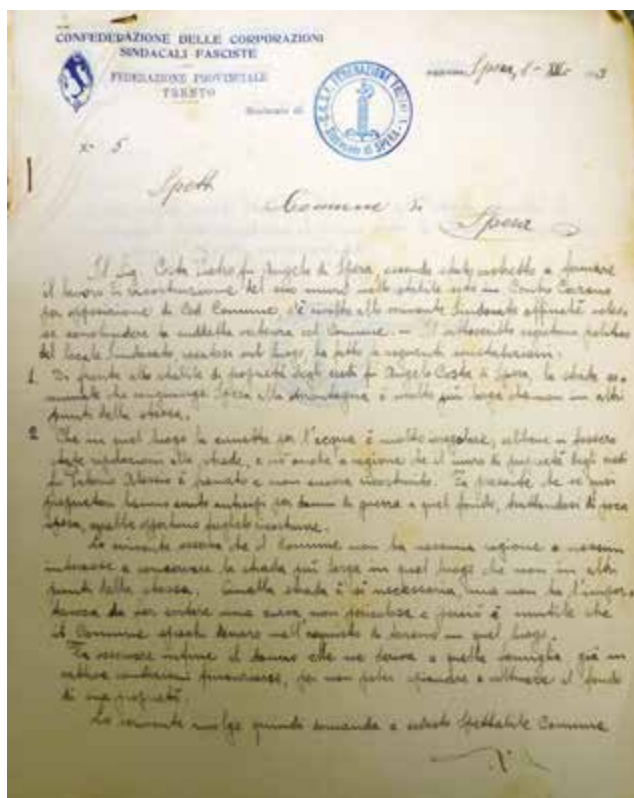 CONFEDERAZIONE DELLE CORPORAZIONI
SINDACALI FASCISTE
FEDERAZIONE PROVINCIALE
TRENTO
Spera, 8 - XII
Sindacato di
Sindacato di SPERA
N. 5
Spett
Comune di
Spera
Il Sig. Costa Pietro fu Angelo di Spera, essendo stato costretto a fermare
il lavoro di ricostruzione del suo muro nello stabile sito in
per opposizione di Cod. Comune, s'è rivolto allo scrivente Sindacato affinché
col Comune. — Il sottoscritto segretario politico
del locale Sindacato, sul luogo, ha fatto le seguenti constatazioni.
1. Di fronte allo stabile di proprietà degli eredi fu Angelo Costa di Spera, la strada co-
munale che congiunge Spera alla montagna è molto più larga che non in altri
punti della stessa.
2. Che in quel luogo la cunetta per l'acqua è molto irregolare, sebbene si fossero
state riparazioni alla strada, e ciò anche a ragione che il muro di proprietà degli eredi
fu Antonio è franato e non ancora ricostruito. Fa presente che se quei
proprietari hanno avuto anticipi per danni di guerra a quel fondo, trattandosi di poca
spesa, sarebbe opportuno farglielo ricostruire.
Lo scrivente osserva che il Comune non ha nessuna ragione e nessun
interesse a conservare la strada più larga in quel luogo che non in altri
punti della stessa. Quella strada è sì necessaria, ma non ha l'impor-
tanza da per evitare una curva non pericolosa e perciò è inutile che
il Comune spenda denaro nell'acquisto di terreno in quel luogo.
Fa osservare infine il danno che ne deriva a quella famiglia, già in
cattive condizioni finanziarie, per non poter e coltivare il fondo
di sua proprietà.
Lo scrivente rivolge quindi domanda a codesto Spettabile Comune